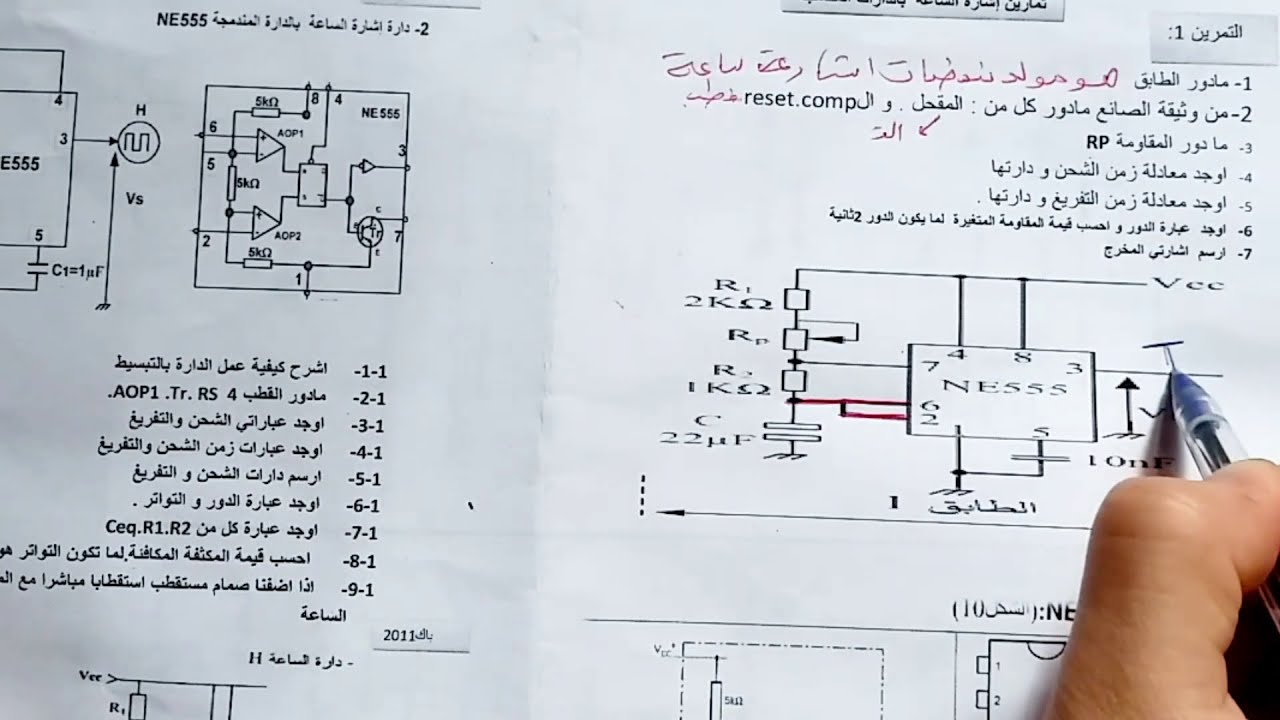 تمارين إشارة الساعة بالدارات
التمرين 1:
1- مادور الطابق هو مولد نبضات اشارة ساعة
2- من وثيقة الصانع مادور كل من : المقحل . و الreset.comp
3- ما دور المقاومة RP
4- اوجد معادلة زمن الشحن و دارتها
5- اوجد معادلة زمن التفريغ و دارتها .
6- اوجد عبارة الدور و احسب قيمة المقاومة المتغيرة لما يكون الدور 2ثانية
7- ارسم اشارتي المخرج
Vcc
R1
2KΩ
RP
R2
1KΩ
C
22µF
4 8 3
7
NE555
6
2
5
V
10nF
الطابق 1
NE:(الشكل10)
Vcc
5kΩ
1
2
2- دارة إشارة الساعة بالدارة المندمجة NE555
4
H
3
E555
Vs
5
C1=1µF
5kΩ
8 4
NE555
6
AOP1
3
5
5kΩ
R
S
C
Tr
E
AOP2
2
7
5kΩ
1
1-1- اشرح كيفية عمل الدارة بالتبسيط
2-1- مادور القطب 4 AOP1 .Tr. RS.
3-1- اوجد عباراتي الشحن والتفريغ
4-1- اوجد عبارات زمن الشحن والتفريغ
5-1- ارسم دارات الشحن و التفريغ
6-1- اوجد عبارة الدور و التواتر .
7-1- اوجد عبارة كل من Ceq.R1.R2
8-1- احسب قيمة المكثفة المكافئة.لما تكون التواتر هو
9-1- اذا اضفنا صمام مستقطب استقطابا مباشرا مع
الساعة
باك2011
- دارة الساعة H
Vcc
R1